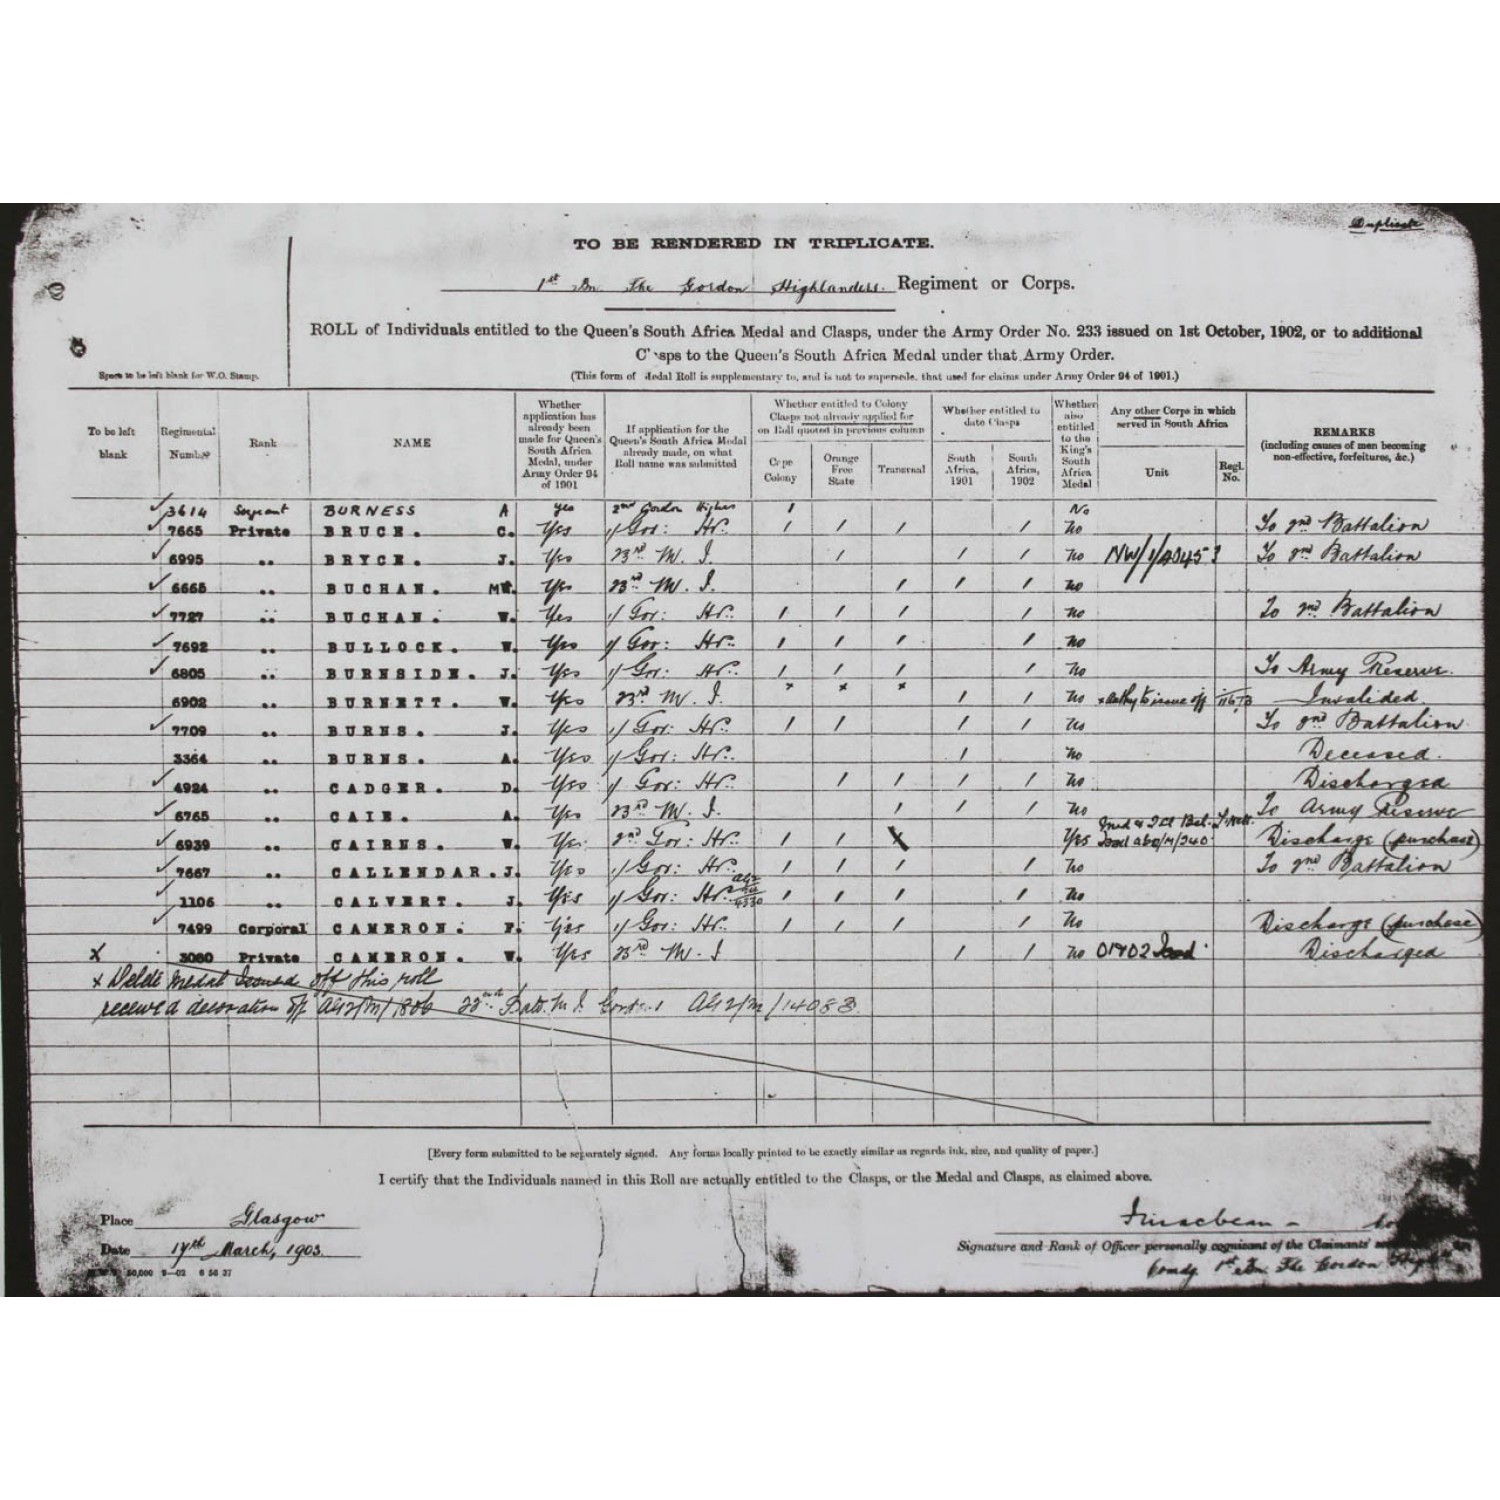 Duplicate
TO BE RENDERED IN TRIPLICATE.
1st Bn The Gordon Highlanders. Regiment or Corps.
ROLL of Individuals entitled to the Queen's South Africa Medal and Clasps, under the Army Order No. 233 issued on 1st October, 1902, or to additional
C sps to the Queen's South Africa Medal under that Army Order.
(This form of Medal Roll is supplementary to, and is not to supersede, that used for claims under Army Order 94 of 1901.)
Space to be left blank for W.O. Stamp.
To be left blank
Regimental Number
Rank
NAME
Whether application has already been made for Queen's South Africa Medal, under Army Order 94 of 1901
If application for the Queen's South Africa Medal already made, on what Roll name was submitted
Whether entitled to Colony Clasps not already applied for on Roll quoted in previous column
Cape Colony
Orange Free State
Transvaal
Whether entitled to date Clasps
South Africa, 1901
South Africa, 1902
Whether also entitled to the King's South Africa Medal
Any other Corps in which served in South Africa
Unit
Regl. No.
REMARKS
(including causes of men becoming non-effective, forfeitures, &c.)
✓ 3614 Sergeant BURNESS A yes 2nd Gordon Highrs / No
✓ 7665 Private BRUCE. C. Yes 1/ Gor: Hr: / / / / No To 2nd Battalion
✓ 6995 .. BRYCE. J. Yes 23rd M. I. / / / No To 2nd Battalion
✓ 6665 .. BUCHAN. MW. Yes 23rd M. I. / / / No
✓ 7727 .. BUCHAN. W. Yes 1/ Gor: Hr: / / / / No To 2nd Battalion
✓ 7692 .. BULLOCK. W. Yes 1/ Gor: Hr: / / / / No
✓ 6805 .. BURNSIDE. J. Yes 1/ Gor: Hr: / / / / No To Army Reserve.
6902 .. BURNETT. W. Yes 23rd M. I. x x x / / No x authy to issue off 1167/3 Invalided.
✓ 7709 .. BURNS. J. Yes 1/ Gor: Hr: / / / / No To 2nd Battalion
3364 .. BURNS. A. Yes 1/ Gor: Hr: / No Deceased.
✓ 4924 .. CADGER. D. Yes 1/ Gor: Hr: / / / / No Discharged
✓ 6765 .. CAIE. A. Yes 23rd M. I. / / / No To Army Reserve
✓ 6939 .. CAIRNS. W. Yes 2nd Gor: Hr: / / X Yes Discharge (purchase)
✓ 7667 .. CALLENDAR. J. Yes 1/ Gor: Hr: / / / / No To 2nd Battalion
1106 .. CALVERT. J. Yes 1/ Gor: Hr: / / / / No
✓ 7499 Corporal CAMERON. F. Yes 1/ Gor: Hr: / / / / No Discharge (purchase)
x 3080 Private CAMERON. W. Yes 23rd M. I / / No 01702 Discharged
x Delete Medal Issued off this roll
received decoration off AG2/M/1806 22nd Batt. M I AG2/M/14088
[Every form submitted to be separately signed. Any forms locally printed to be exactly similar as regards ink, size, and quality of paper.]
I certify that the Individuals named in this Roll are actually entitled to the Clasps, or the Medal and Clasps, as claimed above.
Place Glasgow
Date 17th March, 1903.
50,000 9—02 6 56 37
Signature and Rank of Officer personally cognizant of the Claimants'
Comdg 1st Bn The Gordon